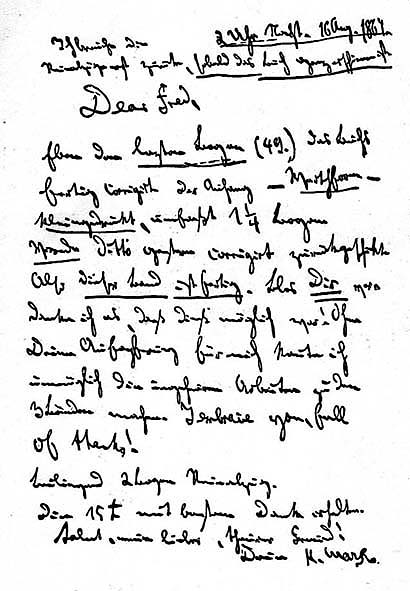 Ich brauche die 2 Uhr Nacht. 16 Aug. 1867.
Reinabzüge erst zurück, sobald das Buch ganz erschienen ist
Dear Fred,
Eben den letzten Bogen (49.) des Buchs
fertig corrigirt. Der Anhang – Werthform –
kleingedruckt, umfaßt 1 1/4 Bogen.
Vorrede ditto gestern corrigirt zurückgeschickt.
Also dieser Band ist fertig. Blos Dir ver-
danke ich es, daß dieß möglich war! Ohne
Deine Aufopferung für mich konnte ich
unmöglich die ungeheuren Arbeiten zu den
3 Bänden machen. I embrace you, full
of thanks!
Beiliegend 2 Bogen Reinabzug.
Die 15 £ mit bestem Dank erhalten.
Salut, mein lieber, theurer Freund!
Dein K. Marx.